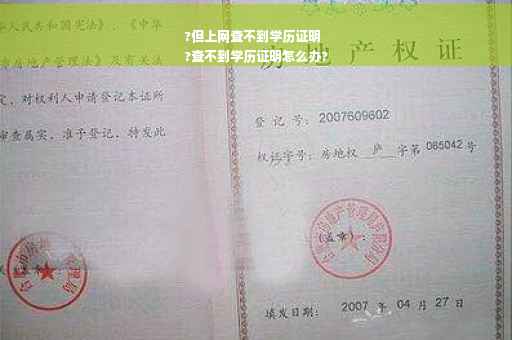 ?但上网查不到学历证明
?查不到学历证明怎么办?
华人民共和国宪法》、《中华
房地产管理法》及有关法
定，对权利人申请登记本证所
审查属实，准予登记，特发此
房地产权证
登记号：2007609602
权证字号：房地权 庐 字第 085042 号
（盖章）：
填发日期： 2007 年 04 月 27 日